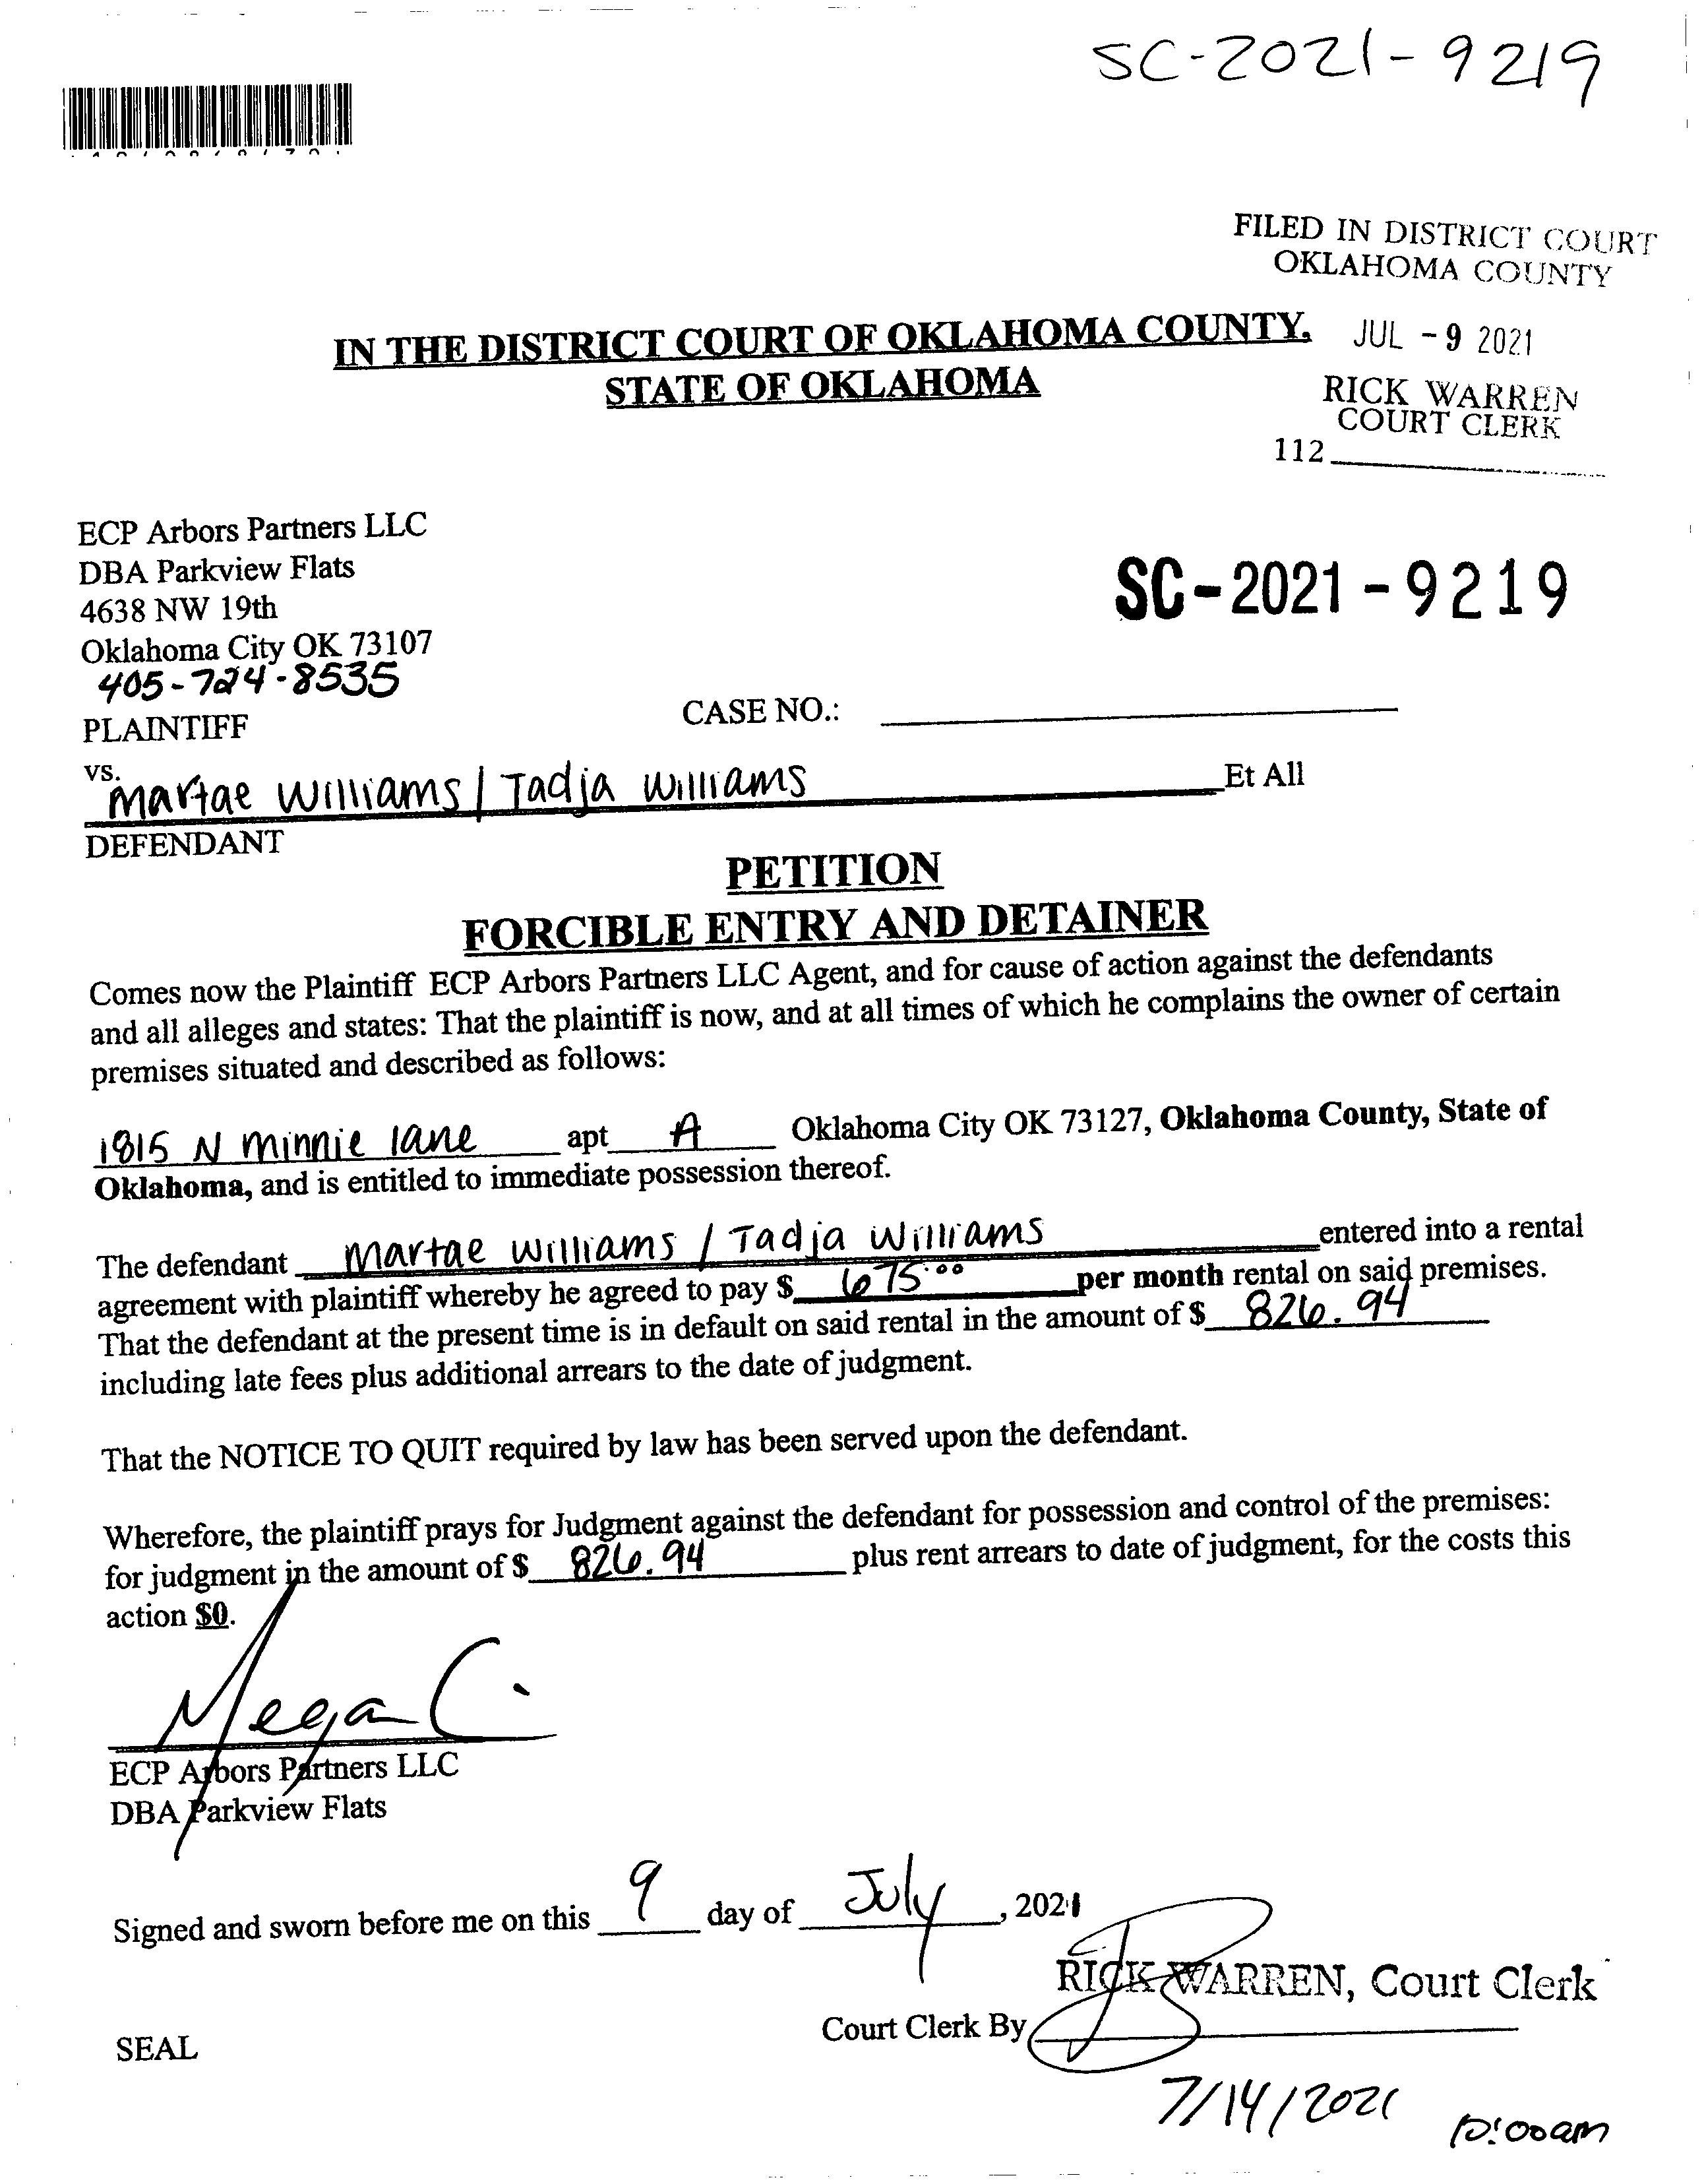 SC-2021-9219
FILED IN DISTRICT COURT
OKLAHOMA COUNTY
IN THE DISTRICT COURT OF OKLAHOMA COUNTY,
STATE OF OKLAHOMA
JUL - 9 2021
RICK WARREN
COURT CLERK
112
ECP Arbors Partners LLC
DBA Parkview Flats
4638 NW 19th
Oklahoma City OK 73107
405-724-8535
SC-2021-9219
PLAINTIFF
CASE NO.:
vs.
Martae Williams / Tadja Williams Et All
DEFENDANT
PETITION
FORCIBLE ENTRY AND DETAINER
Comes now the Plaintiff ECP Arbors Partners LLC Agent, and for cause of action against the defendants
and all alleges and states: That the plaintiff is now, and at all times of which he complains the owner of certain
premises situated and described as follows:
1815 N Minnie lane apt A Oklahoma City OK 73127, Oklahoma County, State of
Oklahoma, and is entitled to immediate possession thereof.
The defendant Martae Williams / Tadja Williams entered into a rental
agreement with plaintiff whereby he agreed to pay $ 675.00 per month rental on said premises.
That the defendant at the present time is in default on said rental in the amount of $ 826.94
including late fees plus additional arrears to the date of judgment.
That the NOTICE TO QUIT required by law has been served upon the defendant.
Wherefore, the plaintiff prays for Judgment against the defendant for possession and control of the premises:
for judgment in the amount of $ 826.94 plus rent arrears to date of judgment, for the costs this
action $0.
Megan C.
ECP Arbors Partners LLC
DBA Parkview Flats
Signed and sworn before me on this 9 day of July, 2021
RICK WARREN, Court Clerk
Court Clerk By
SEAL
7/14/2021 10:00am